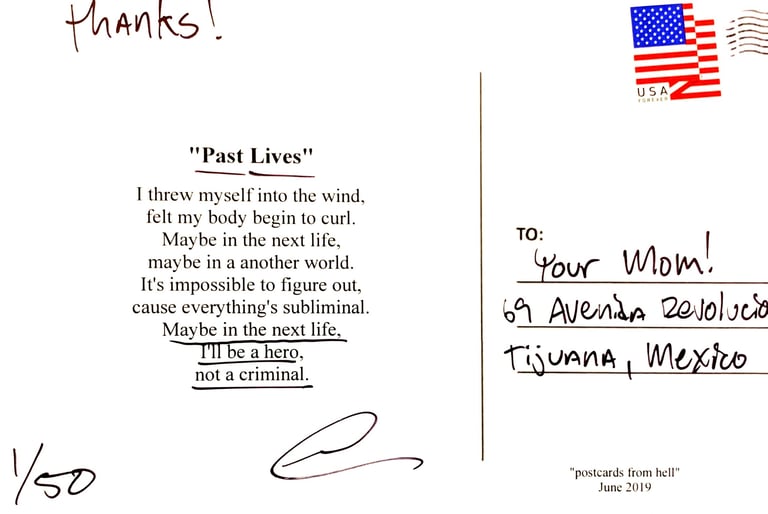 thanks!
USA
FOREVER
"Past Lives"
I threw myself into the wind,
felt my body begin to curl.
Maybe in the next life,
maybe in a another world.
It's impossible to figure out,
cause everything's subliminal.
Maybe in the next life,
I'll be a hero,
not a criminal.
1/50
TO:
Your Mom!
69 Avenida Revolucio
Tijuana, Mexico
"postcards from hell"
June 2019